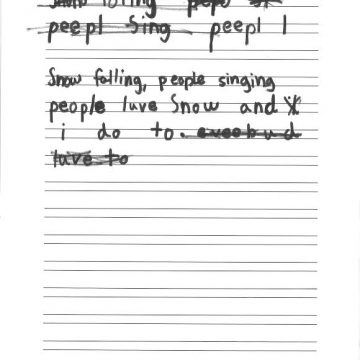 falling
peepl Sing peepl
Snow falling, people singing
people luve Snow and
i do to.
luve to